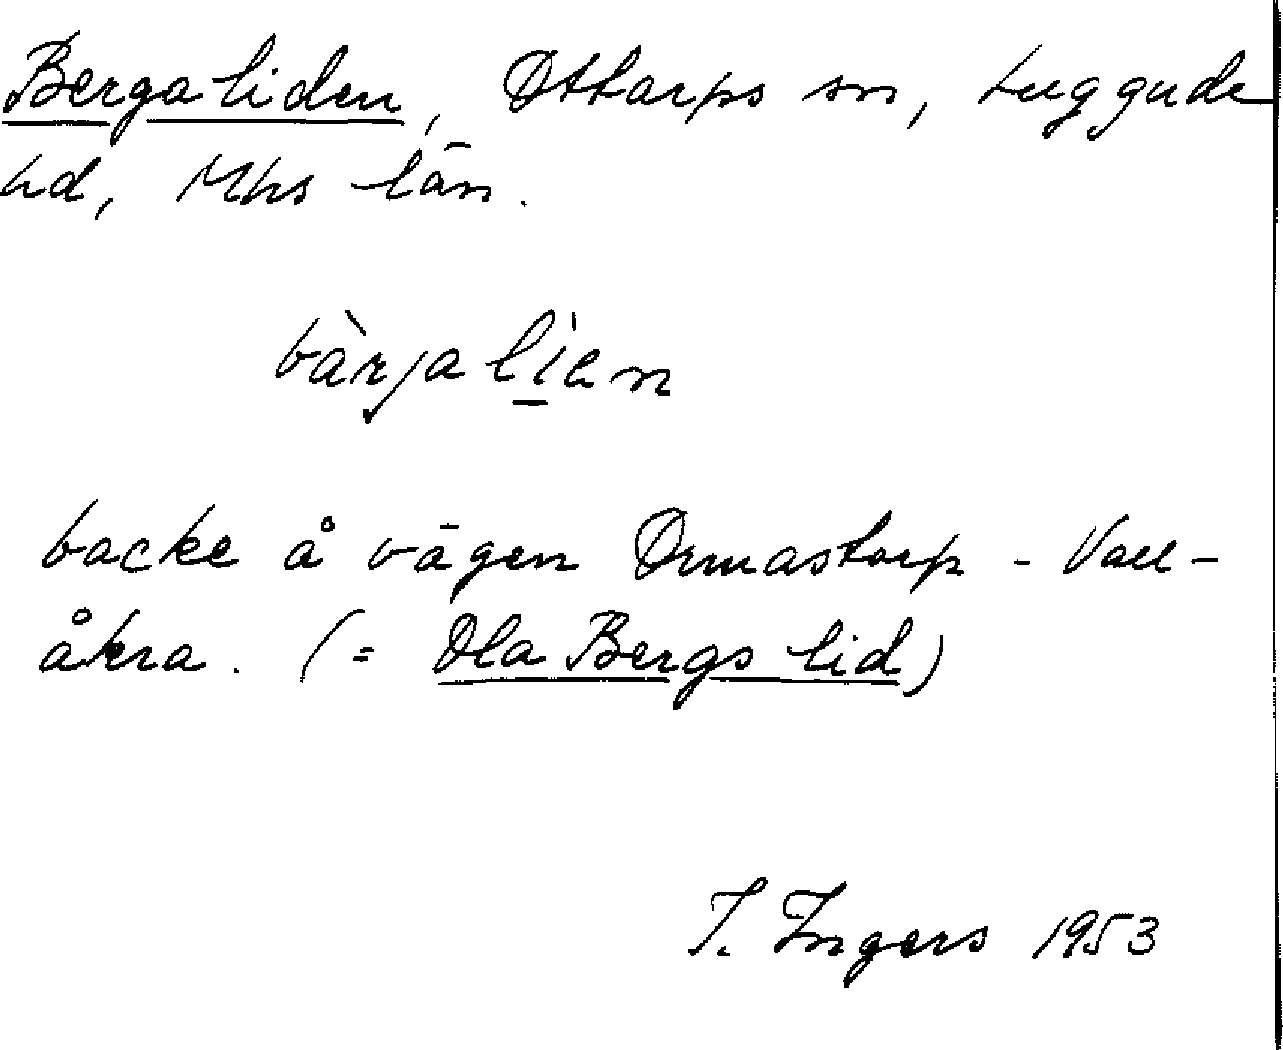 Bergaliden, Ottarps sn, Luggude
hd, Mhs län.
bàrjalien
backe å vägen Ormastorp - Vall-
åkra. (= Ola Bergs lid)
I. Ingers 1953